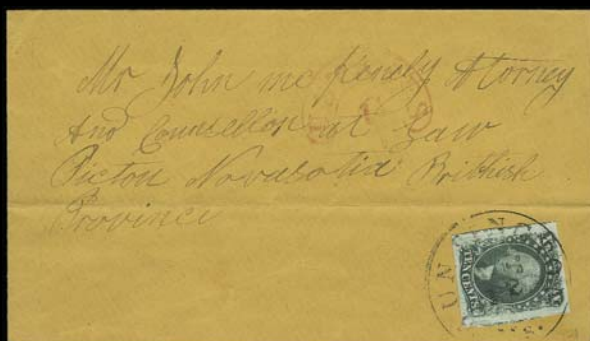 Mr John mc Kendy Atorney
And Councellor at Law
Picton Novascotia Brithish
Province
TEN CENTS